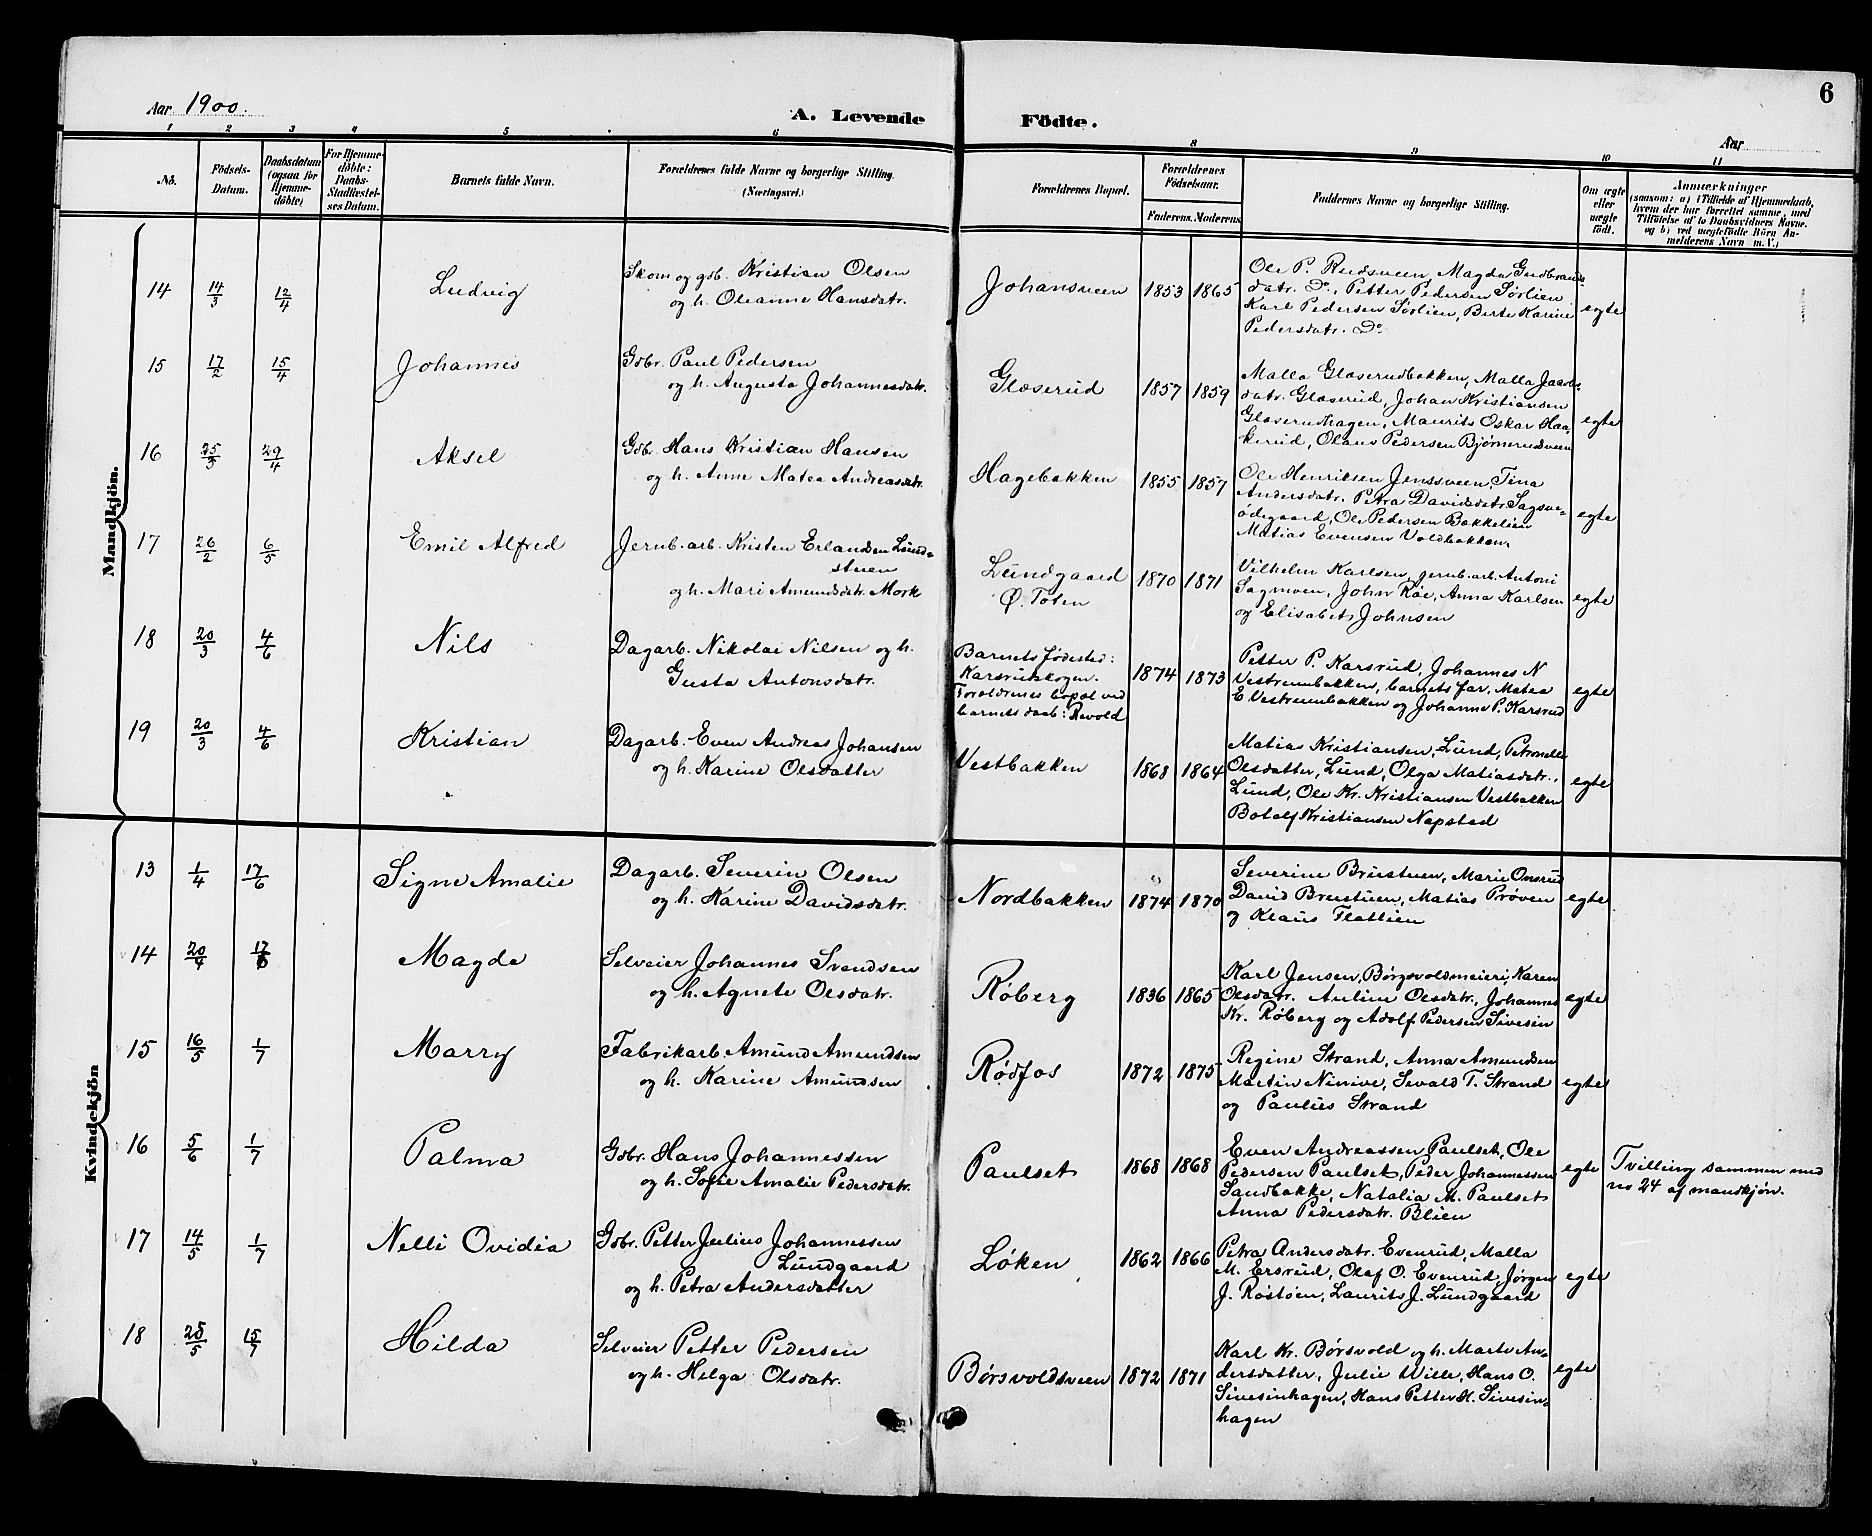 Aar 1900.
A. Levende Födte.
6
Aar
1 2 3 4 5 6 8 9 10 11
No.
Födsels-Datum.
Daabsdatum (ogsaa for Hjemme-döbte)
For Hjemme-döbte: Daabs-Stadfæstel-ses Datum.
Barnets fulde Navn.
Forældrenes fulde Navne og borgerlige Stilling.
(Næringsvei.)
Forældrenes Bopæl.
Forældrenes Födselsaar.
Faderens. Moderens.
Faddernes Navne og borgerlige Stilling.
Om ægte eller uægte födt.
Anmærkninger
(saasom: a) i Tilfælde af Hjemmedaab,
hvem der har forrettet samme, med
Tilföielse af to Daabsvidners Navne.
og b) ved uægtefödte Börn An-
melderens Navn m. V.)
Mandkjön.
14 14/3 12/4 Ludvig
Skom og gdb. Kristian Olsen
og h. Oleanne Hansdatr.
Johansveen 1853 1865
Ole P. Rudsveen, Magda Gudbrands-
datr. Do., Petter Pedersen Sørlien
Karl Pedersen Sørlien, Berte Karine
Pedersdatr. Do
egte
15 17/2 15/4 Johannes
Gdbr. Paul Pedersen
og h. Augusta Johannesdatr.
Glæserud 1857 1859
Malla Glæserudbakken, Malla
datr. Glæserud, Johan Kristiansen
Glæserudhagen, Maurits Oskar Haa-
kerud, Olaus Pedersen Bjørnerudsveen
egte
16 25/3 29/4 Aksel
Gdb. Hans Kristian Hansen
og h. Anne Matea Andreasdatr.
Hagebakken 1855 1857
Ole Henriksen Jenssveen, Tina
Andersdatr. Petra Davidsdatr. Sagsve-
ødegaard, Ole Pedersen Bakkelien
Matias Evensen Voldbakken.
egte
17 26/2 6/5 Emil Alfred
Jernb. arb. Kristen Erlandsen Lund-
stuen
og h. Mari Amundsdatr. Mork
Lundgaard
Ø. Toten
1870 1871
Vilhelm Karlsen, jernb. arb. Antoni
Sagmoen, John Røe, Anna Karlsen
og Elisabet Johnsen
egte
18 20/3 4/6 Nils
Dagarb. Nikolai Nilsen og h.
Gusta Antonsdatr.
Barnets fødested:
Karsrudskogen.
Forældrenes bopæl ved
barnets daab: Revold
1874 1873
Petter P. Karsrud, Johannes N
Vestrumbakken, barnets far, Matea
E Vestrumbakken og Johanne P. Karsrud
egte
19 20/3 4/6 Kristian
Dagarb. Even Andreas Johansen
og h. Karine Olsdatter
Vestbakken 1868 1864
Matias Kristiansen, Lund, Petronelle
Olsdatter, Lund, Olga Matiasdatr.,
Lund, Ole Kr. Kristiansen Vestbakken
Botolf Kristiansen Napstad
egte
Kvindekjön
13 1/4 17/6 Signe Amalie
Dagarb. Severin Olsen
og h. Karine Davidsdatr.
Nordbakken 1874 1870
Severine Brustuen, Marie Onsrud
David Brustuen, Matias Prøven
og Klaus Flatlien
egte
14 20/4 17/6 Magda
Selveier Johannes Svendsen
og h. Agnete Olsdatr.
Røberg 1836 1865
Karl Jensen, Børgsvoldmeieri, Karen
Olsdatr. Auline Olsdatr., Johannes
Kr. Røberg og Adolf Pedersen Sivesin
egte
15 16/5 1/7 Marry
Fabrikarb Amund Amundsen
og h. Karine Amundsen
Rødfos 1872 1875
Regine Strand, Anna Amundsen
Martin Ninive, Sevald T. Strand
og Paulus Strand
egte
16 5/6 1/7 Palma
Gdbr. Hans Johannessen
og h. Sofie Amalie Pedersdatr.
Paulset 1868 1868
Even Andreassen Paulset, Ole
Pedersen Paulset, Peder Johannessen
Sandbakke, Natalia M. Paulset
Anna Pedersdatr. Blien
egte
Tvilling sammen med
no 24 af mandkjøn.
17 14/5 1/7 Nelli Ovidia
Gdbr. Petter Julius Johannessen
Lundgaard
og h. Petra Andersdatter
Løken 1862 1866
Petra Andersdatr. Evenrud, Malla
M. Ersrud, Olaf O. Evenrud, Jørgen
J. Røstøen, Laurits J. Lundgaard
egte
18 25/5 15/7 Hilda
Selveier Petter Pedersen
og h. Helga Olsdatr.
Børsvoldsveen 1872 1871
Karl Kr. Børsvold og h. Marte An-
dersdatter, Julie Wille, Hans O.
Sivesinhagen, Hans Petter H. Sivesin-
hagen
egte